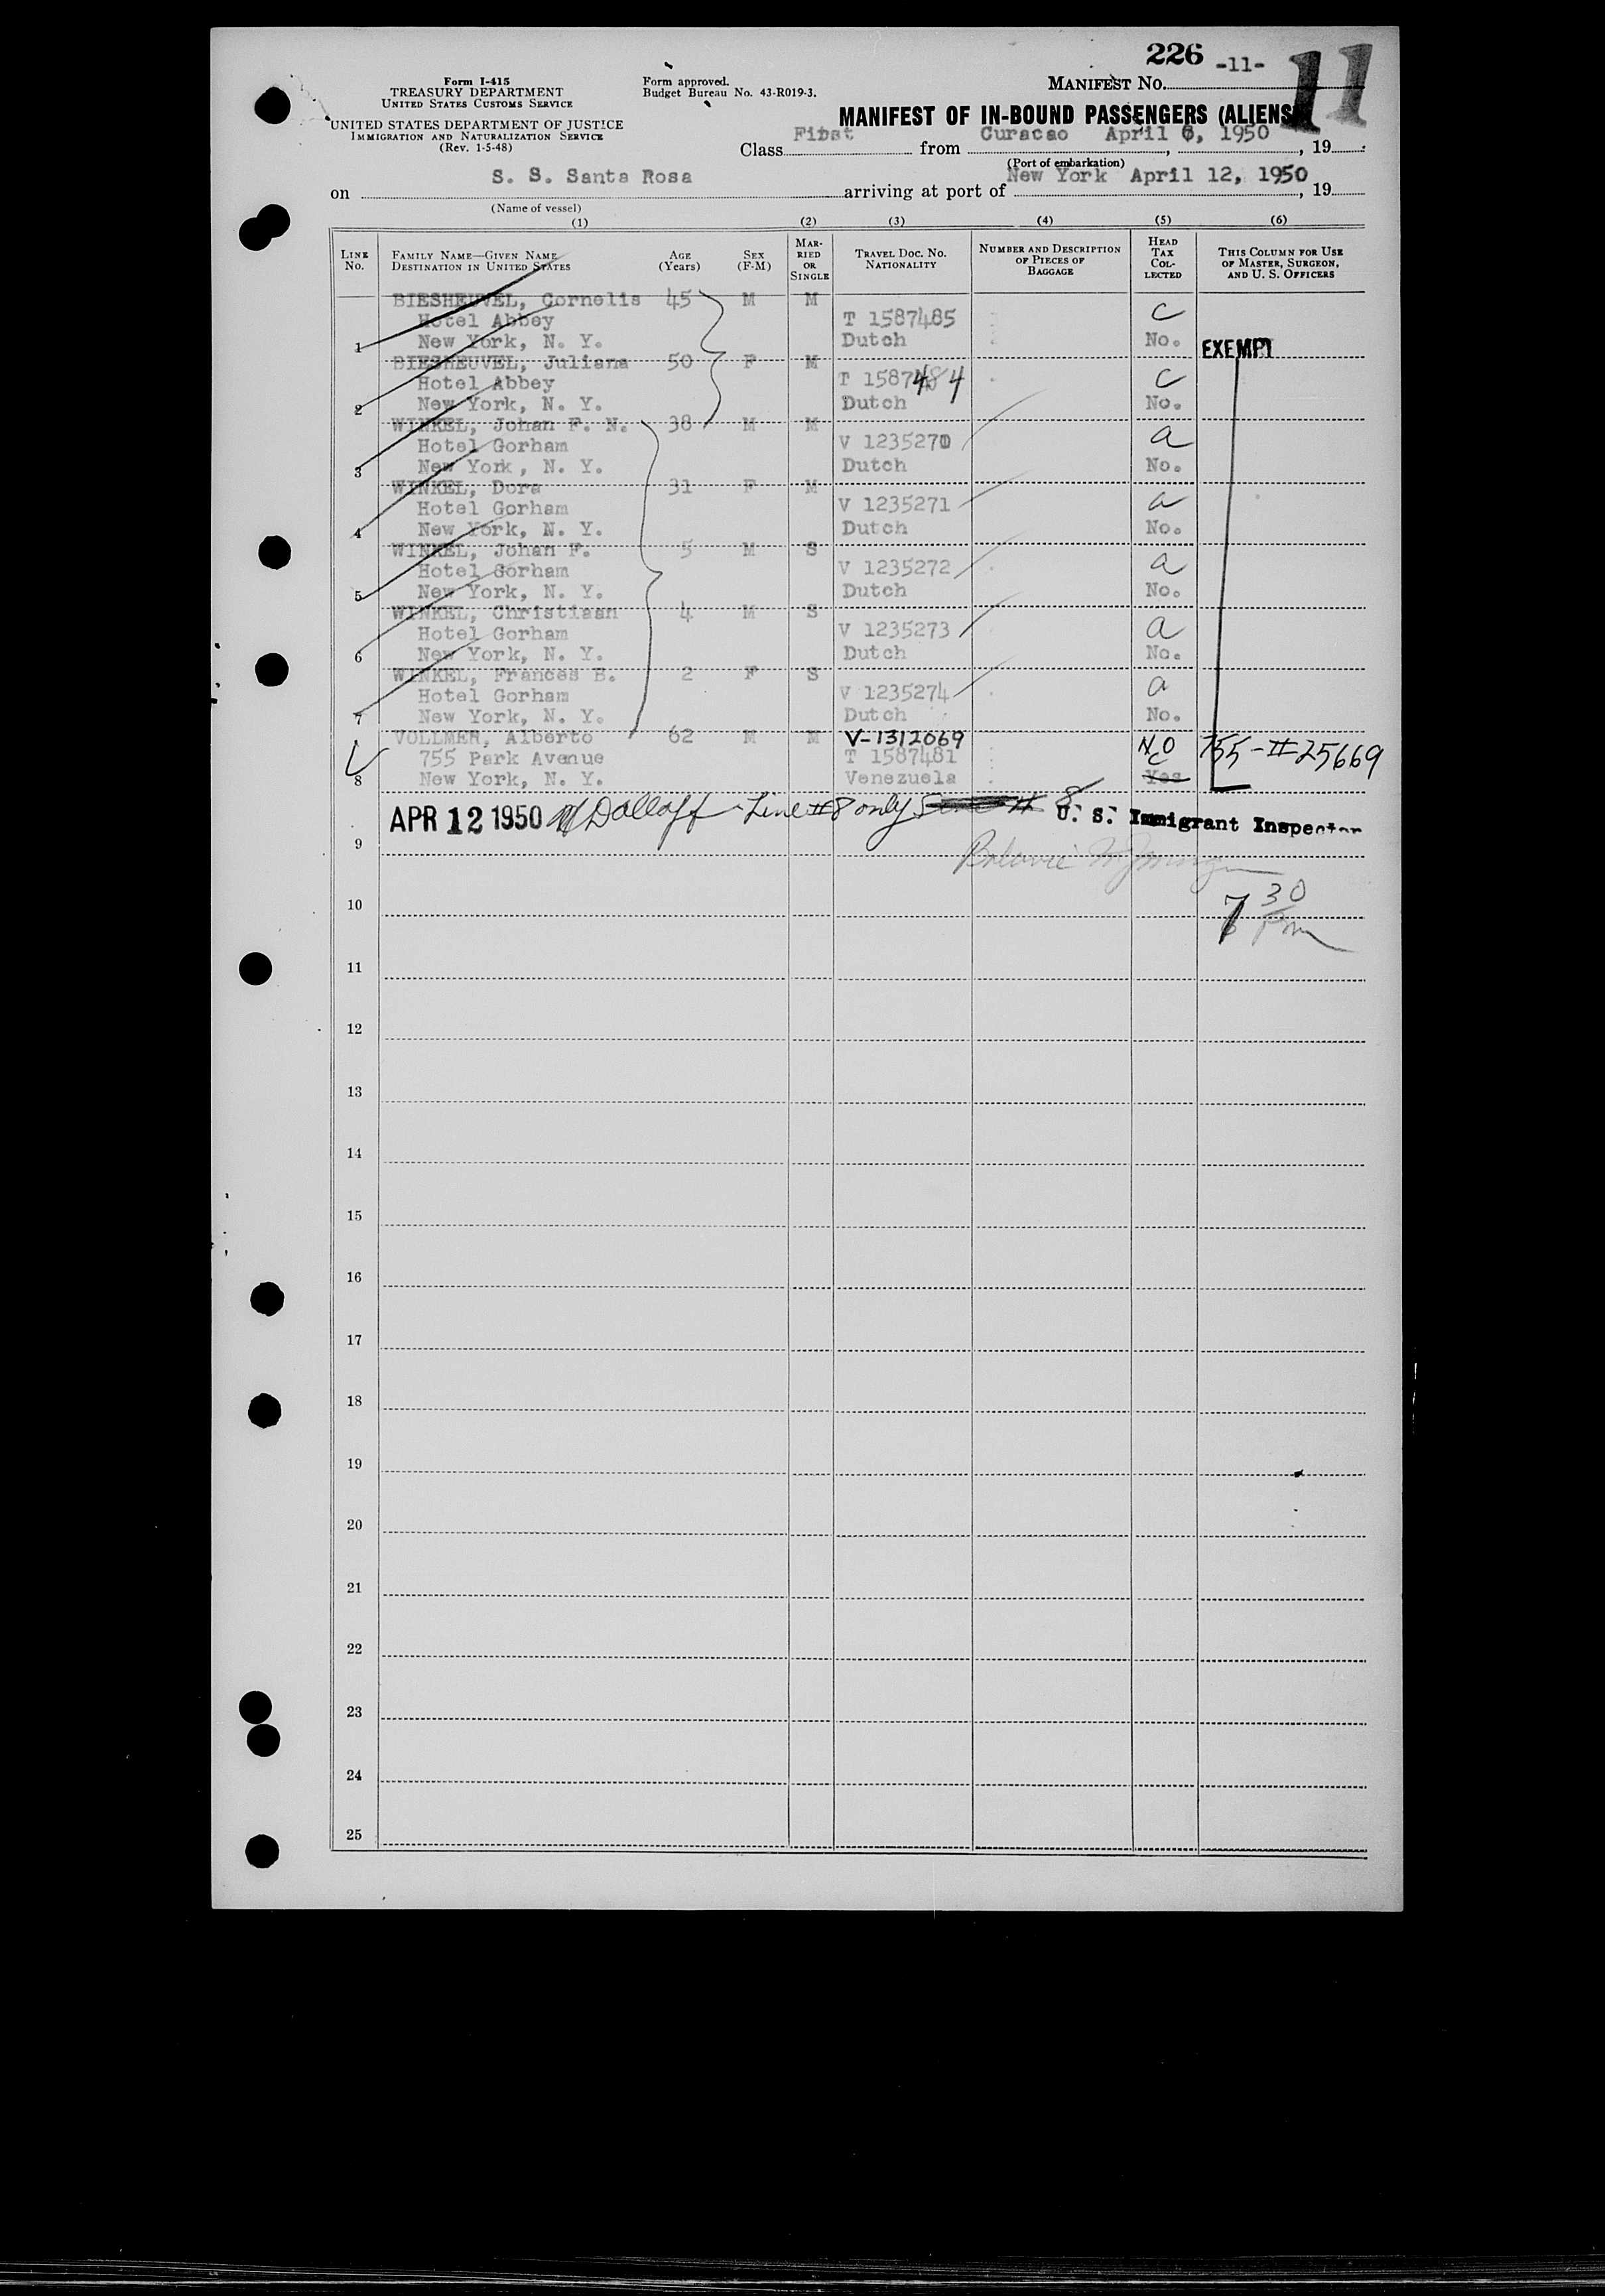 226 -11- 11
Form I-415
TREASURY DEPARTMENT
UNITED STATES CUSTOMS SERVICE
Form approved.
Budget Bureau No. 43-R019-3.
MANIFEST NO.
UNITED STATES DEPARTMENT OF JUSTICE
IMMIGRATION AND NATURALIZATION SERVICE
(Rev. 1-5-48)
MANIFEST OF IN-BOUND PASSENGERS (ALIENS
Class First from Curacao April 6, 1950, 19
(Port of embarkation)
on S. S. Santa Rosa arriving at port of New York April 12, 1950, 19
(Name of vessel)
(1) (2) (3) (4) (5) (6)
LINE NO. FAMILY NAME—GIVEN NAME DESTINATION IN UNITED STATES AGE (Years) SEX (F-M) MARRIED OR SINGLE TRAVEL DOC. NO. NATIONALITY NUMBER AND DESCRIPTION OF PIECES OF BAGGAGE HEAD TAX COLLECTED THIS COLUMN FOR USE OF MASTER, SURGEON, AND U. S. OFFICERS
BIESHEUVEL, Cornelis 45 M M
Hotel Abbey T 1587485 C
1 New York, N. Y. Dutch No. EXEMPT
BIESHEUVEL, Juliana 50 F M
Hotel Abbey T 1587484 C
2 New York, N. Y. Dutch No.
WINKEL, Johan F. N. 38 M M
Hotel Gorham V 1235270 a
3 New York, N. Y. Dutch No.
WINKEL, Dora 31 F M
Hotel Gorham V 1235271 a
4 New York, N. Y. Dutch No.
WINKEL, Johan F. 5 M S
Hotel Gorham V 1235272 a
5 New York, N. Y. Dutch No.
WINKEL, Christiaan 4 M S
Hotel Gorham V 1235273 a
6 New York, N. Y. Dutch No.
WINKEL, Frances B. 2 F S
Hotel Gorham V 1235274 a
7 New York, N. Y. Dutch No.
VOLLMER, Alberto 62 M M V-1312069 NO 755-#25669
755 Park Avenue T 1587481 C
8 New York, N. Y. Venezuela Yes
APR 12 1950 Dolloff Line #8 only # 8 U. S. Immigrant Inspector
9
10 7 30 Pm
11
12
13
14
15
16
17
18
19
20
21
22
23
24
25